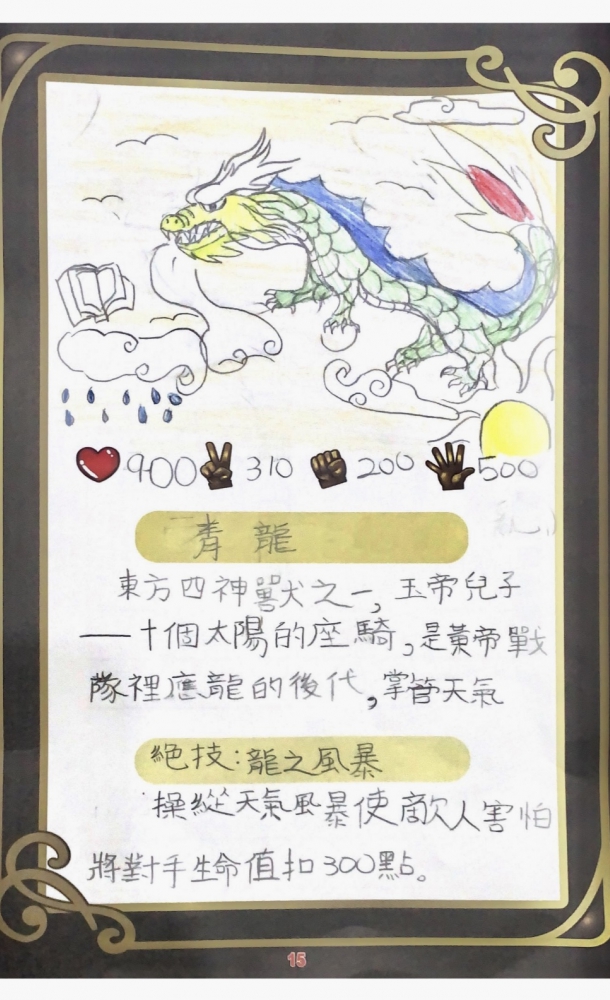 900 310 200 500
青龍
東方四神獸之一，玉帝兒子
——十個太陽的座騎，是黃帝戰
隊裡應龍的後代，掌管天氣
絕技：龍之風暴
操縱天氣風暴使敵人害怕
將對手生命值扣300點。
15